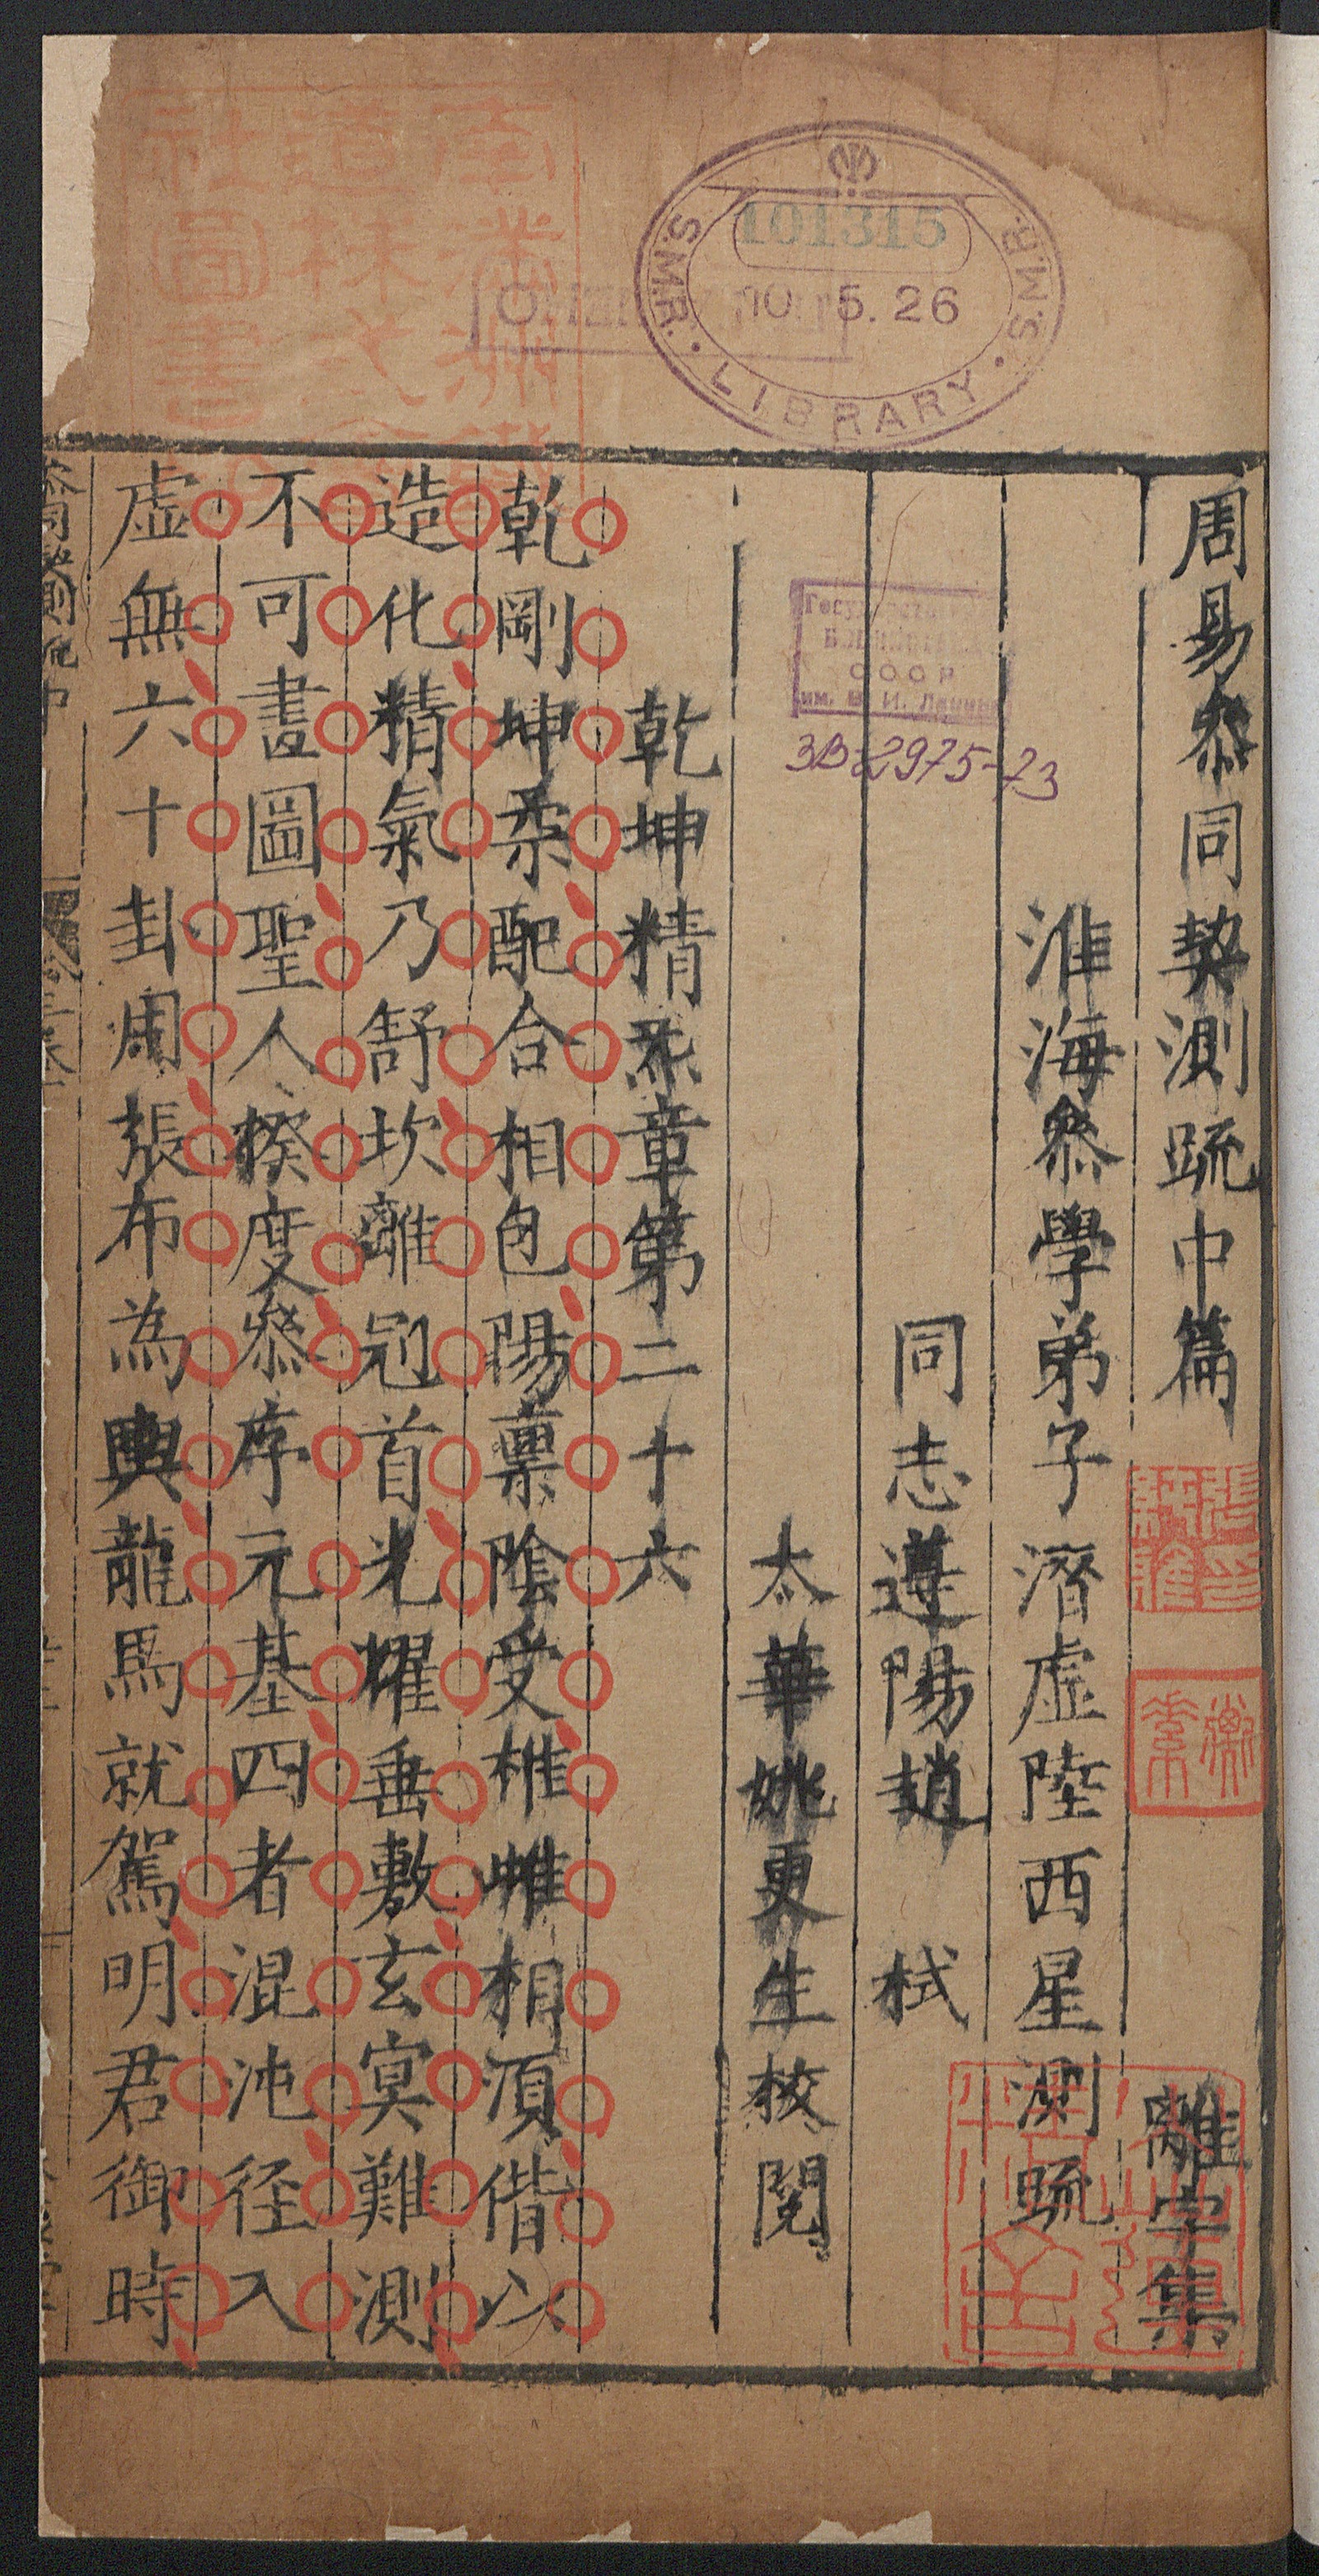 周易叅同契測疏中篇 離字集
淮海叅學弟子濳虛陸西星測疏
同志遵陽趙 栻
太華姚更生校閱
乾坤精炁章第二十六
乾剛坤柔配合相包陽禀陰受雄雌相須偕以
造化精氣乃舒坎離冠首光耀垂敷玄冥難測
不可畫圖聖人揆度叅序元基四者混沌径入
虛無六十卦周張布為輿龍馬就駕明君御時
S.M.R. LIBRARY S.M.R.
101315
10. 5. 26
СССР
им. В. И. Ленина
3В-2975-73
圖書